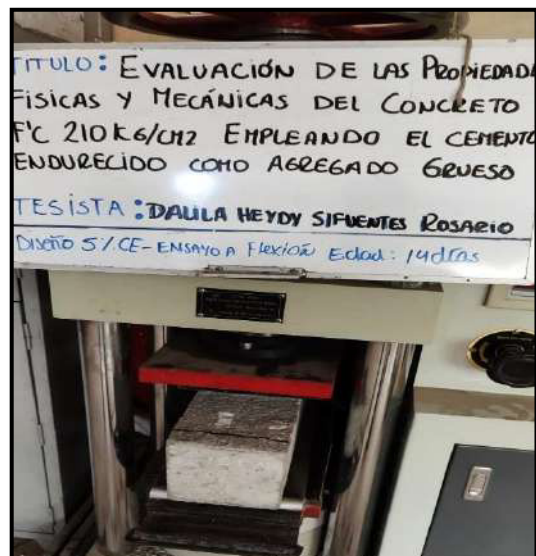 TITULO: EVALUACIÓN DE LAS PROPIEDAD
FISICAS Y MECÁNICAS DEL CONCRETO
F'C 210 KG/CM2 EMPLEANDO EL CEMENTO
ENDURECIDO COMO AGREGADO GRUESO
TESISTA: DALILA HEYDY SIFUENTES ROSARIO
DISEÑO 5% CE-ENSAYO A Flexión Edad: 14 días